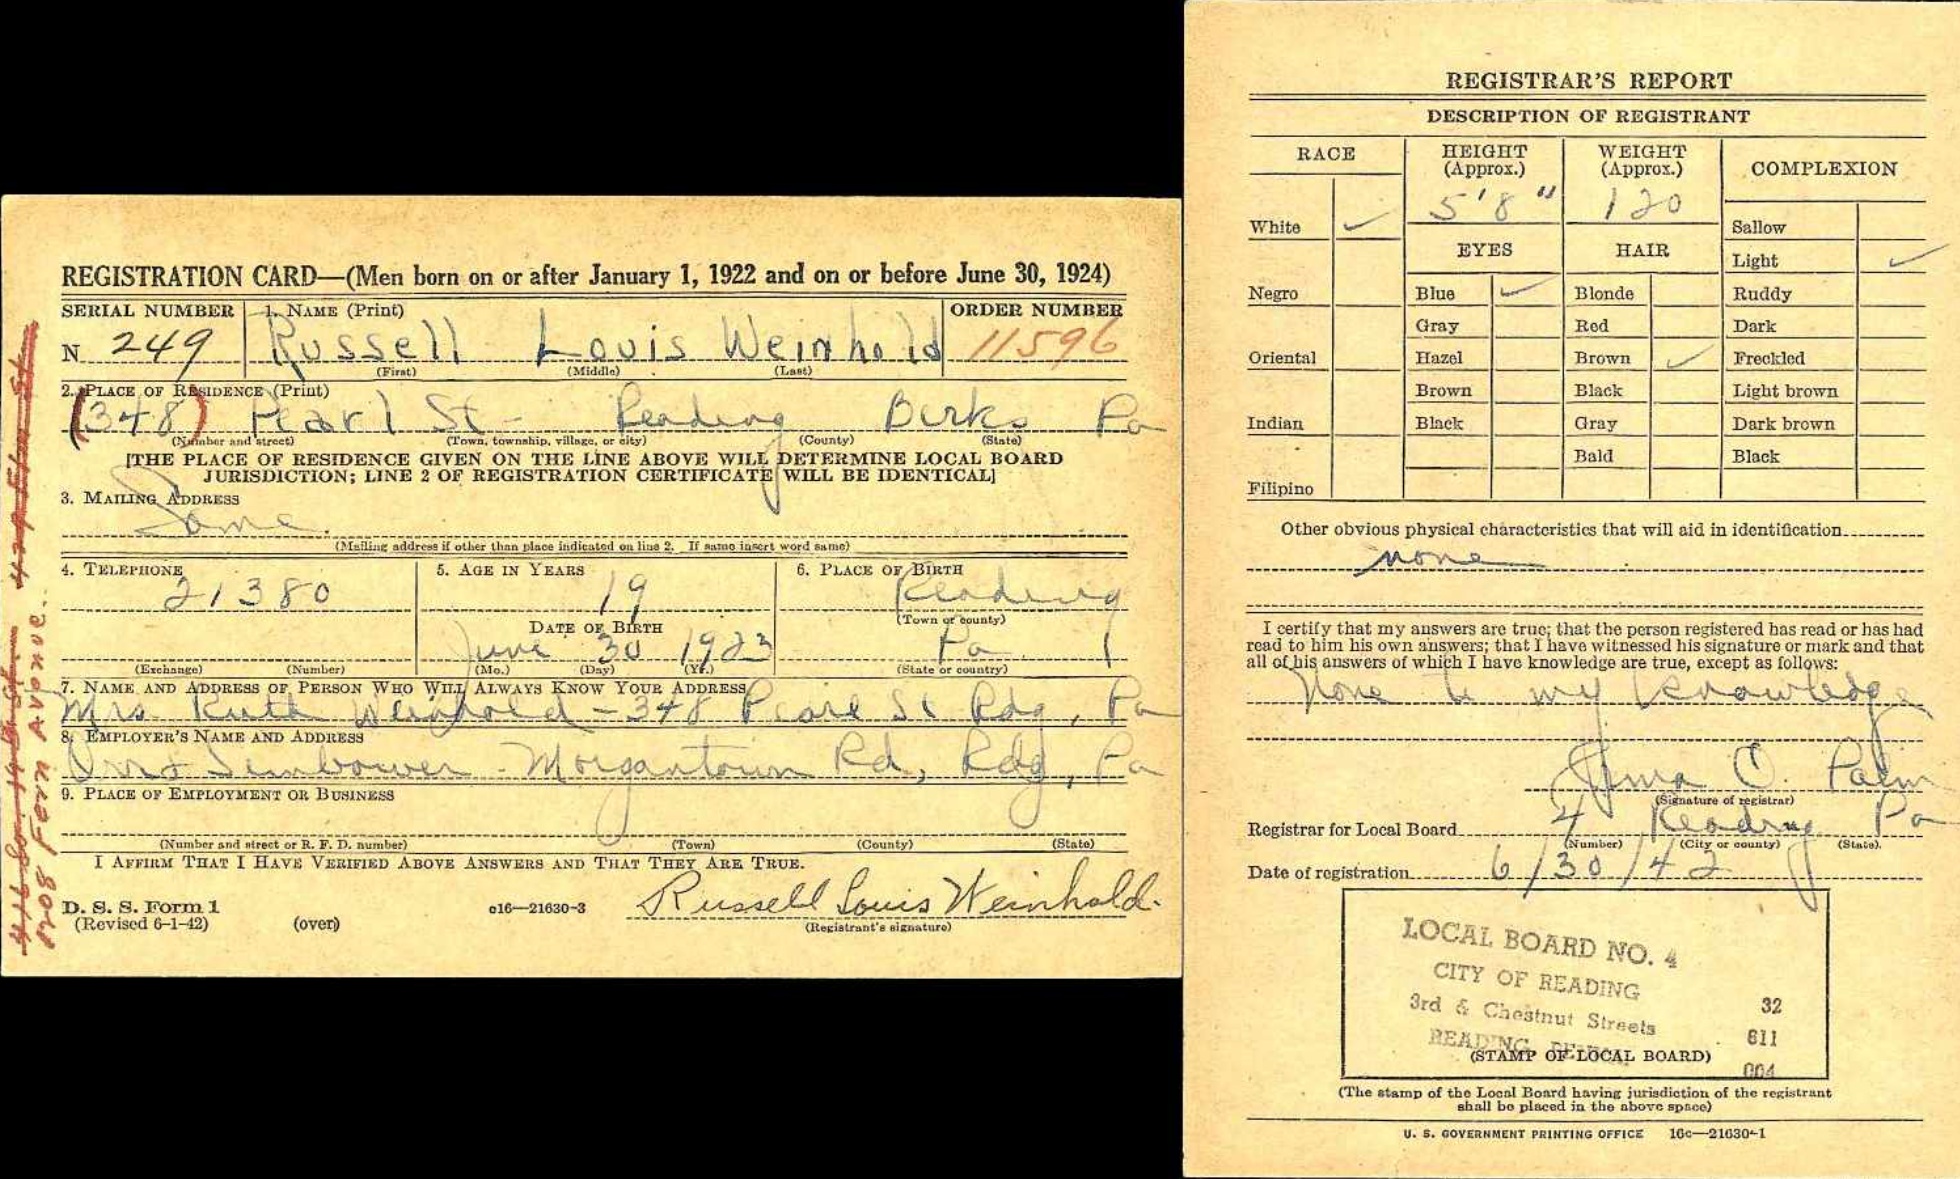 REGISTRATION CARD—(Men born on or after January 1, 1922 and on or before June 30, 1924)
SERIAL NUMBER
1. NAME (Print)
ORDER NUMBER
N 249
Russell Louis Weinhold
11596
(First) (Middle) (Last)
2. PLACE OF RESIDENCE (Print)
(348) Pearl St - Reading Berks Pa
(Number and street) (Town, township, village, or city) (County) (State)
[THE PLACE OF RESIDENCE GIVEN ON THE LINE ABOVE WILL DETERMINE LOCAL BOARD
JURISDICTION; LINE 2 OF REGISTRATION CERTIFICATE WILL BE IDENTICAL]
3. MAILING ADDRESS
Same
(Mailing address if other than place indicated on line 2. If same insert word same)
4. TELEPHONE
5. AGE IN YEARS
6. PLACE OF BIRTH
21380
19
Reading
(Town or county)
DATE OF BIRTH
June 30 1923
Pa
(Exchange) (Number)
(Mo.) (Day) (Yr.)
(State or country)
7. NAME AND ADDRESS OF PERSON WHO WILL ALWAYS KNOW YOUR ADDRESS
Mrs. Ruth Weinhold - 348 Pearl St Rdg, Pa
8. EMPLOYER'S NAME AND ADDRESS
Morgantown Rd, Rdg, Pa
9. PLACE OF EMPLOYMENT OR BUSINESS
(Number and street or R. F. D. number) (Town) (County) (State)
I AFFIRM THAT I HAVE VERIFIED ABOVE ANSWERS AND THAT THEY ARE TRUE.
Russell Louis Weinhold.
D. S. S. Form 1
(Revised 6-1-42)
(over)
c16—21630-3
(Registrant's signature)
Fern Avenue.
REGISTRAR'S REPORT
DESCRIPTION OF REGISTRANT
RACE
HEIGHT
(Approx.)
WEIGHT
(Approx.)
COMPLEXION
5'8"
120
White
Sallow
EYES
HAIR
Light
Negro
Blue
Blonde
Ruddy
Gray
Red
Dark
Oriental
Hazel
Brown
Freckled
Brown
Black
Light brown
Indian
Black
Gray
Dark brown
Bald
Black
Filipino
Other obvious physical characteristics that will aid in identification
none
I certify that my answers are true; that the person registered has read or has had
read to him his own answers; that I have witnessed his signature or mark and that
all of his answers of which I have knowledge are true, except as follows:
None to my knowledge
C. Palm
(Signature of registrar)
Registrar for Local Board 4 Reading Pa
(Number) (City or county) (State)
Date of registration 6/30/42
LOCAL BOARD NO. 4
CITY OF READING
3rd & Chestnut Streets
READING,
32
611
004
(STAMP OF LOCAL BOARD)
(The stamp of the Local Board having jurisdiction of the registrant
shall be placed in the above space)
U. S. GOVERNMENT PRINTING OFFICE 16c—21630-1